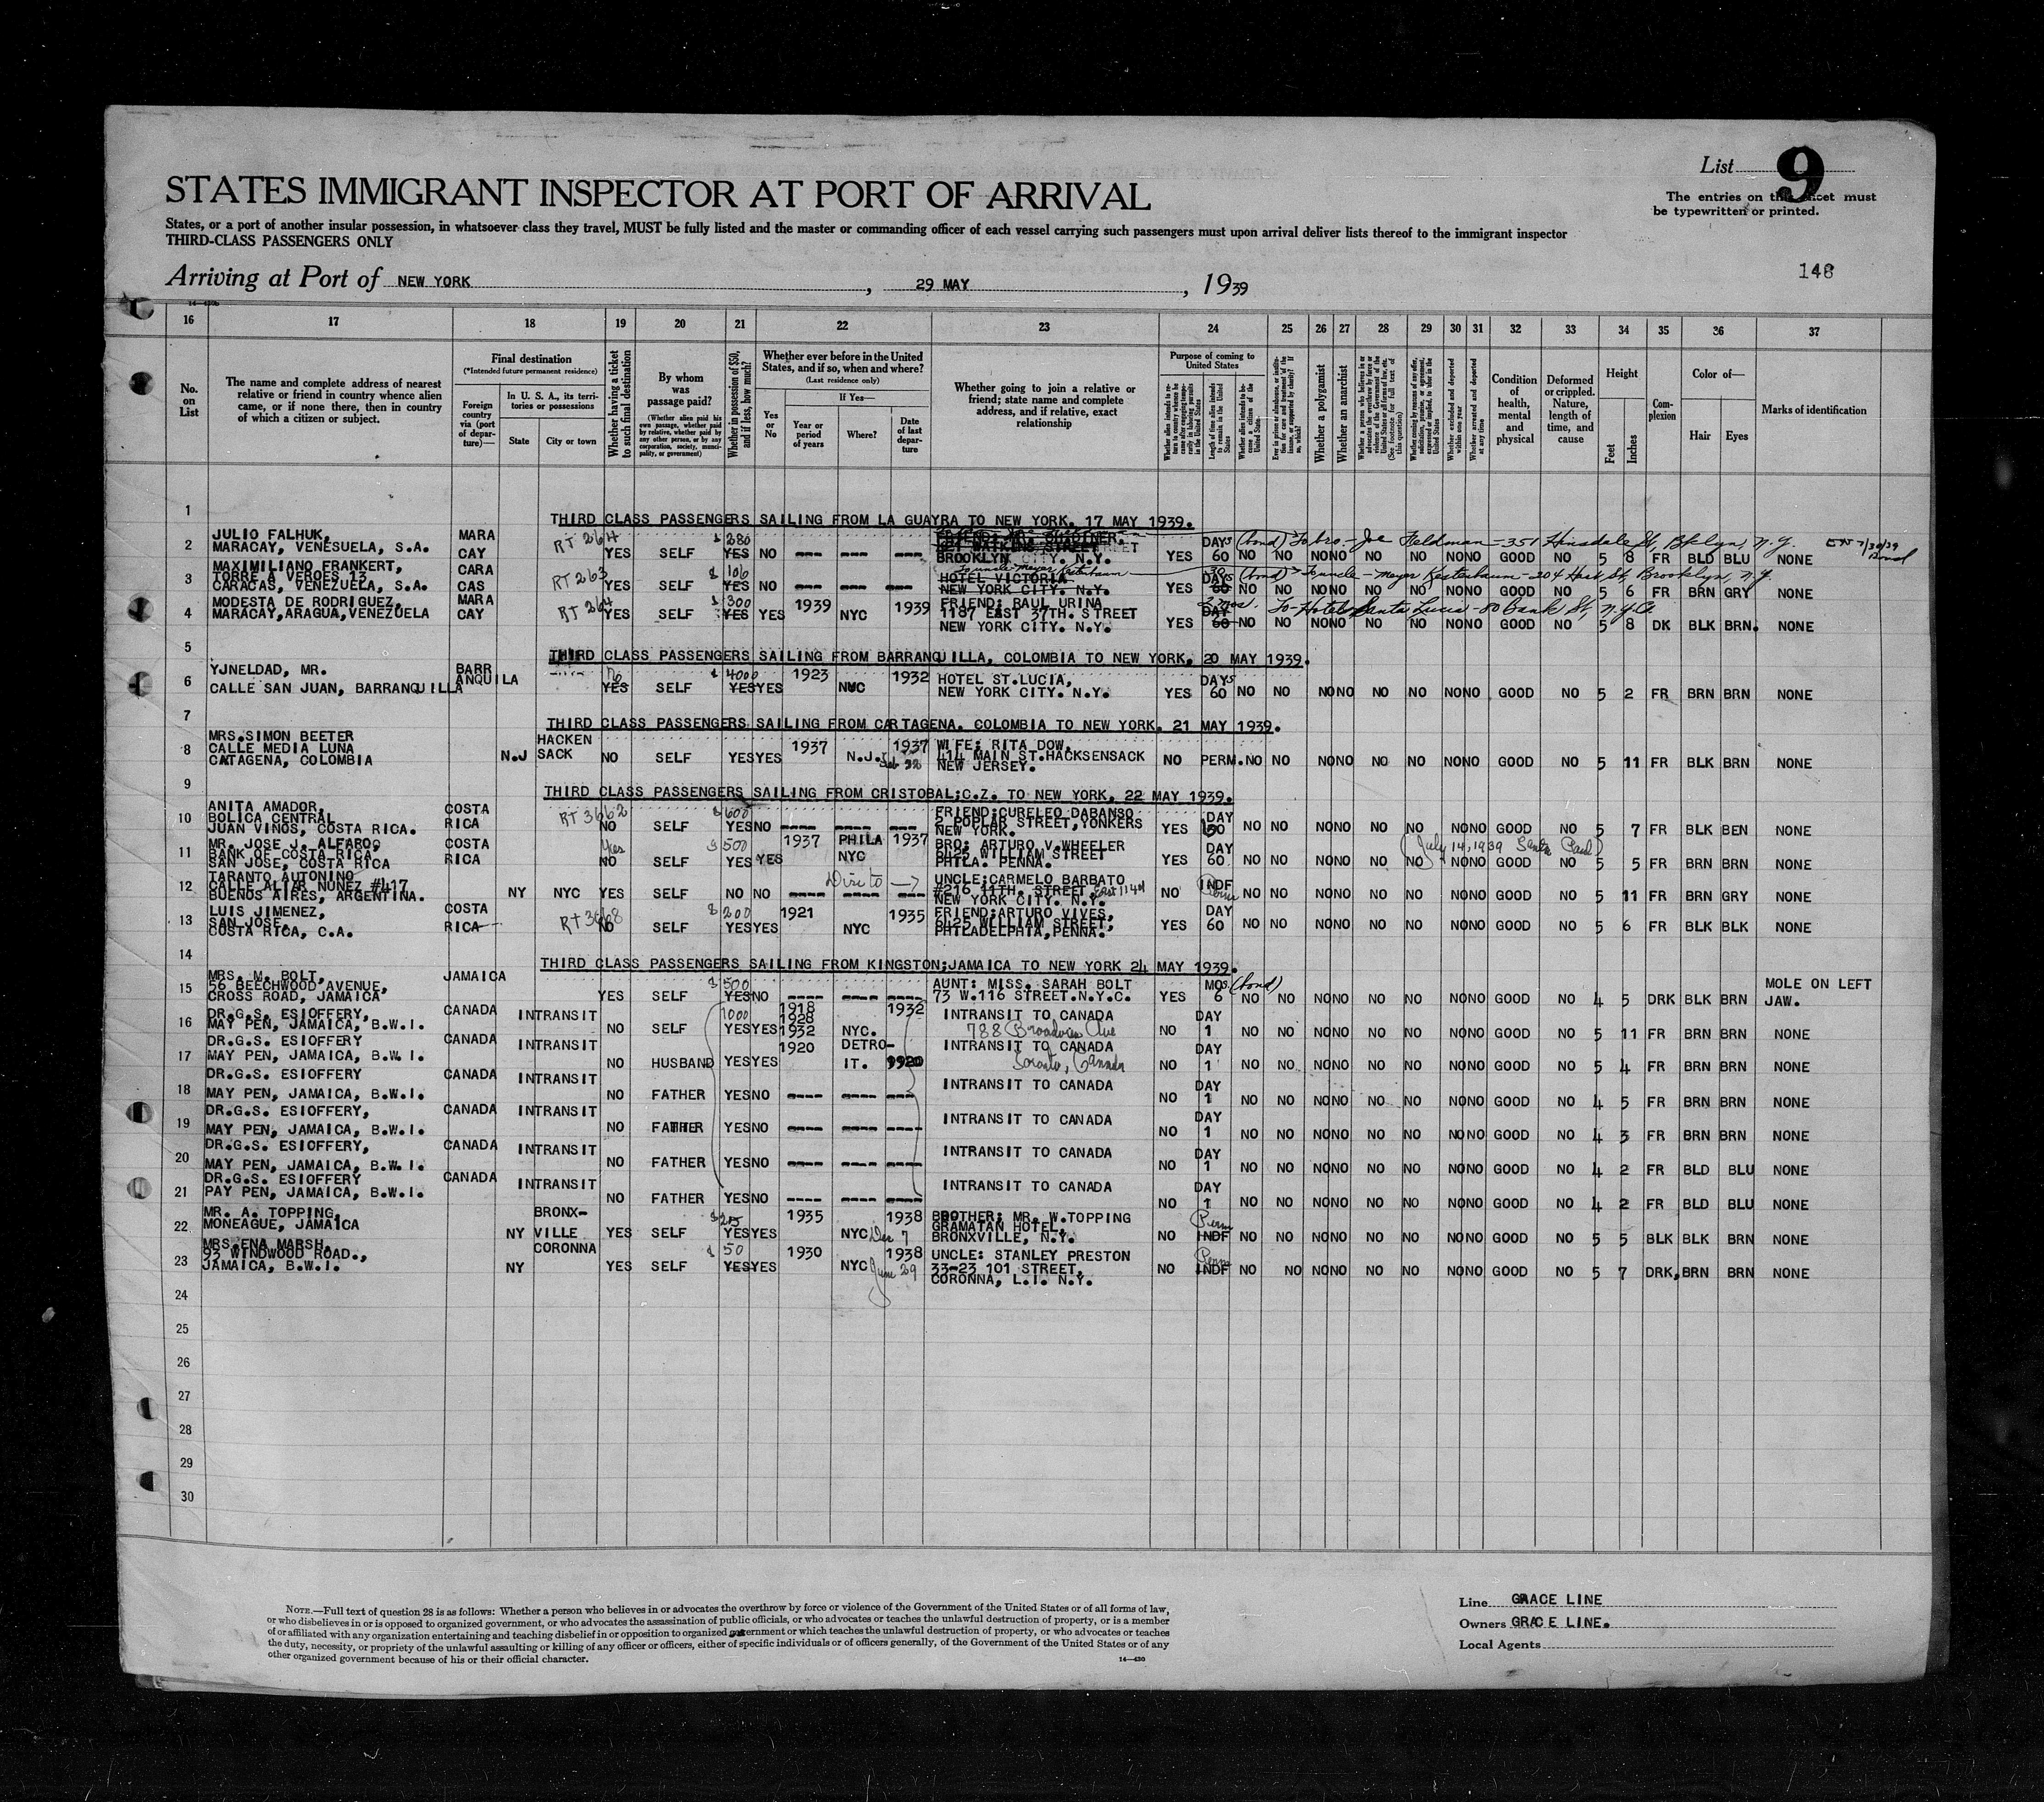 List 9
STATES IMMIGRANT INSPECTOR AT PORT OF ARRIVAL
The entries on this sheet must
be typewritten or printed.
States, or a port of another insular possession, in whatsoever class they travel, MUST be fully listed and the master or commanding officer of each vessel carrying such passengers must upon arrival deliver lists thereof to the immigrant inspector
THIRD-CLASS PASSENGERS ONLY
Arriving at Port of NEW YORK, 29 MAY, 1939
148
16 17 18 19 20 21 22 23 24 25 26 27 28 29 30 31 32 33 34 35 36 37
No. on List
The name and complete address of nearest relative or friend in country whence alien came, or if none there, then in country of which a citizen or subject.
Final destination
(*Intended future permanent residence)
Foreign country via (port of departure)—
In U. S. A., its territories or possessions
State
City or town
Whether having a ticket to such final destination
By whom was passage paid?
(Whether alien paid his own passage, whether paid by relative, whether paid by any other person, or by any corporation, society, municipality, or government)
Whether in possession of $50, and if less, how much?
Whether ever before in the United States, and if so, when and where?
(Last residence only)
Yes or No
If Yes—
Year or period of years
Where?
Date of last departure
Whether going to join a relative or friend; state name and complete address, and if relative, exact relationship
Purpose of coming to United States
Length of time alien intends to remain in the United States
Whether alien intends to become a citizen of the United States
Whether a polygamist
Whether an anarchist
Whether excluded and deported within one year
Whether arrested and deported at any time
Condition of health, mental and physical
Deformed or crippled. Nature, length of time, and cause
Height
Feet
Inches
Complexion
Color of—
Hair
Eyes
Marks of identification
1 THIRD CLASS PASSENGERS SAILING FROM LA GUAYRA TO NEW YORK. 17 MAY 1939.
2 JULIO FALHUK,
MARACAY, VENESUELA, S.A. MARA CAY RT 264 YES SELF $280 YES NO ---- ---- ----
BROOKLYN CITY. N.Y. YES DAYS 60 (bond) To bro. - Joe Feldman - 351 Hinsdale St, Bklyn, N.Y. NO NO NO NO NO NO NO NO GOOD NO 5 8 FR BLD BLU NONE
7/30/39
3 MAXIMILIANO FRANKERT,
TORRE A VEROES 17
CARACAS, VENEZUELA, S.A. CARA CAS RT 263 YES SELF $106 YES NO ---- ---- ----
To uncle-Meyer Kestenbaum
HOTEL VICTORIA
NEW YORK CITY. N.Y. YES 30 DAYS 60 (bond) Uncle - Meyer Kestenbaum - 204 Hart St, Brooklyn, N.Y. NO NO NO NO NO NO NO NO GOOD NO 5 6 FR BRN GRY NONE
4 MODESTA DE RODRIGUEZ,
MARACAY,ARAGUA,VENEZUELA MARA CAY RT 264 YES SELF $300 YES YES 1939 NYC 1939
FRIEND: RAUL URINA
1187 EAST 37TH. STREET
NEW YORK CITY. N.Y. YES 2 mos. DAY 60 To - Hotel Santa Lucia - 80 Bank St, N.Y.C. NO NO NO NO NO NO NO NO GOOD NO 5 8 DK BLK BRN. NONE
5 THIRD CLASS PASSENGERS SAILING FROM BARRANQUILLA, COLOMBIA TO NEW YORK. 20 MAY 1939.
6 YJNELDAD, MR.
CALLE SAN JUAN, BARRANQUILLA BARR ANQUILA YES SELF $4000 YES YES 1923 NYC 1932
HOTEL ST.LUCIA,
NEW YORK CITY. N.Y. YES DAYS 60 NO NO NO NO NO NO NO NO GOOD NO 5 2 FR BRN BRN NONE
7 THIRD CLASS PASSENGERS SAILING FROM CARTAGENA. COLOMBIA TO NEW YORK. 21 MAY 1939.
8 MRS.SIMON BEETER
CALLE MEDIA LUNA
CATAGENA, COLOMBIA N.J HACKEN SACK NO SELF YES YES 1937 N.J. 1937
WIFE: RITA DOW,
414 MAIN ST.HACKSENSACK
NEW JERSEY. NO PERM. NO NO NO NO NO NO NO NO GOOD NO 5 11 FR BLK BRN NONE
9 THIRD CLASS PASSENGERS SAILING FROM CRISTOBAL;C.Z. TO NEW YORK, 22 MAY 1939.
10 ANITA AMADOR,
BOLICA CENTRAL
JUAN VINOS, COSTA RICA. COSTA RICA RT 3662 NO SELF $600 YES NO ---- ---- ---
FRIEND;CURELEO DABANSO
2 POPLAR STREET,YONKERS
NEW YORK. YES DAY NO NO NO NO NO NO NO NO GOOD NO 5 7 FR BLK BEN NONE
11 MR. JOSE J. ALFARO
BANK OF COSTA RICA,
SAN JOSE, COSTA RICA COSTA RICA Yes NO SELF $500 YES YES 1937 PHILA NYC 1937
BRO: ARTURO V.WHEELER
6425 WILLIAM STREET
PHILA. PENNA. YES DAY 60 NO NO NO NO NO NO NO NO GOOD NO 5 5 FR BRN BRN NONE
(July 14, 1939 Santa Paul)
12 TARANTO AUTONINO
CALLE ALTAR NUNEZ #417
BUENOS AIRES, ARGENTINA. NY NYC YES SELF NO NO ---- ---- ----
UNCLE;CARMELO BARBATO
#216 11TH. STREET.
NEW YORK CITY. N.Y. NO INDF NO NO NO NO NO NO NO NO GOOD NO 5 11 FR BRN GRY NONE
13 LUIS JIMENEZ,
SAN JOSE,
COSTA RICA, C.A. COSTA RICA RT 3668 NO SELF $200 YES YES 1921 NYC 1935
FRIEND;ARTURO VIVES,
6425 WILLIAM STREET,
PHILADELPHIA,PENNA. YES DAY 60 NO NO NO NO NO NO NO NO GOOD NO 5 6 FR BLK BLK NONE
14 THIRD CLASS PASSENGERS SAILING FROM KINGSTON;JAMAICA TO NEW YORK 24 MAY 1939.
15 MRS. M. BOLT,
56 BEECHWOOD AVENUE,
CROSS ROAD, JAMAICA JAMAICA YES SELF $500 YES NO ---- ---- ----
AUNT: MISS. SARAH BOLT
73 W.116 STREET.N.Y.C. YES MOS. 6 (bond) NO NO NO NO NO NO NO NO GOOD NO 4 5 DRK BLK BRN MOLE ON LEFT JAW.
16 DR.G.S. ESIOFFERY,
MAY PEN, JAMAICA, B.W.I. CANADA INTRANSIT NO SELF 1000 YES YES 1918 1928 1932 NYC. 1932
INTRANSIT TO CANADA
788 Broadview Ave NO DAY 1 NO NO NO NO NO NO NO NO GOOD NO 5 11 FR BRN BRN NONE
17 DR.G.S. ESIOFFERY
MAY PEN, JAMAICA, B.W.I. CANADA INTRANSIT NO HUSBAND YES YES 1920 DETRO-IT. 1920
INTRANSIT TO CANADA
Toronto, Canada NO DAY 1 NO NO NO NO NO NO NO NO GOOD NO 5 4 FR BRN BRN NONE
18 DR.G.S. ESIOFFERY
MAY PEN, JAMAICA, B.W.I. CANADA INTRANSIT NO FATHER YES NO ---- ---- ---- INTRANSIT TO CANADA NO DAY 1 NO NO NO NO NO NO NO NO GOOD NO 4 5 FR BRN BRN NONE
19 DR.G.S. ESIOFFERY,
MAY PEN, JAMAICA, B.W.I. CANADA INTRANSIT NO FATHER YES NO ---- ---- ---- INTRANSIT TO CANADA NO DAY 1 NO NO NO NO NO NO NO NO GOOD NO 4 3 FR BRN BRN NONE
20 DR.G.S. ESIOFFERY,
MAY PEN, JAMAICA, B.W.I. CANADA INTRANSIT NO FATHER YES NO ---- ---- ---- INTRANSIT TO CANADA NO DAY 1 NO NO NO NO NO NO NO NO GOOD NO 4 2 FR BLD BLU NONE
21 DR.G.S. ESIOFFERY
PAY PEN, JAMAICA, B.W.I. CANADA INTRANSIT NO FATHER YES NO ---- ---- ---- INTRANSIT TO CANADA NO DAY 1 NO NO NO NO NO NO NO NO GOOD NO 4 2 FR BLD BLU NONE
22 MR. A. TOPPING,
MONEAGUE, JAMAICA NY BRONX-VILLE YES SELF YES YES 1935 NYC 1938 Dec 7
BROTHER; MR. W.TOPPING
GRAMATAN HOTEL,
BRONXVILLE, N.Y. NO Perm INDF NO NO NO NO NO NO NO NO GOOD NO 5 5 BLK BLK BRN NONE
23 MRS.ENA MARSH,
93 WINDWOOD ROAD.,
JAMAICA, B.W.I. NY CORONNA YES SELF $50 YES YES 1930 NYC 1938 June 29
UNCLE: STANLEY PRESTON
33-23 101 STREET,
CORONNA, L.I. N.Y. NO Perm INDF NO NO NO NO NO NO NO NO GOOD NO 5 7 DRK, BRN BRN NONE
24
25
26
27
28
29
30
NOTE.—Full text of question 28 is as follows: Whether a person who believes in or advocates the overthrow by force or violence of the Government of the United States or of all forms of law,
or who disbelieves in or is opposed to organized government, or who advocates the assassination of public officials, or who advocates or teaches the unlawful destruction of property, or is a member
of or affiliated with any organization entertaining and teaching disbelief in or opposition to organized government or which teaches the unlawful destruction of property, or who advocates or teaches
the duty, necessity, or propriety of the unlawful assaulting or killing of any officer or officers, either of specific individuals or of officers generally, of the Government of the United States or of any
other organized government because of his or their official character.
14—430
Line GRACE LINE
Owners GRACE LINE.
Local Agents